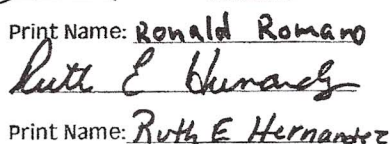 Print Name: Ronald Romano
Ruth E Hernandez
Print Name: Ruth E Hernandez